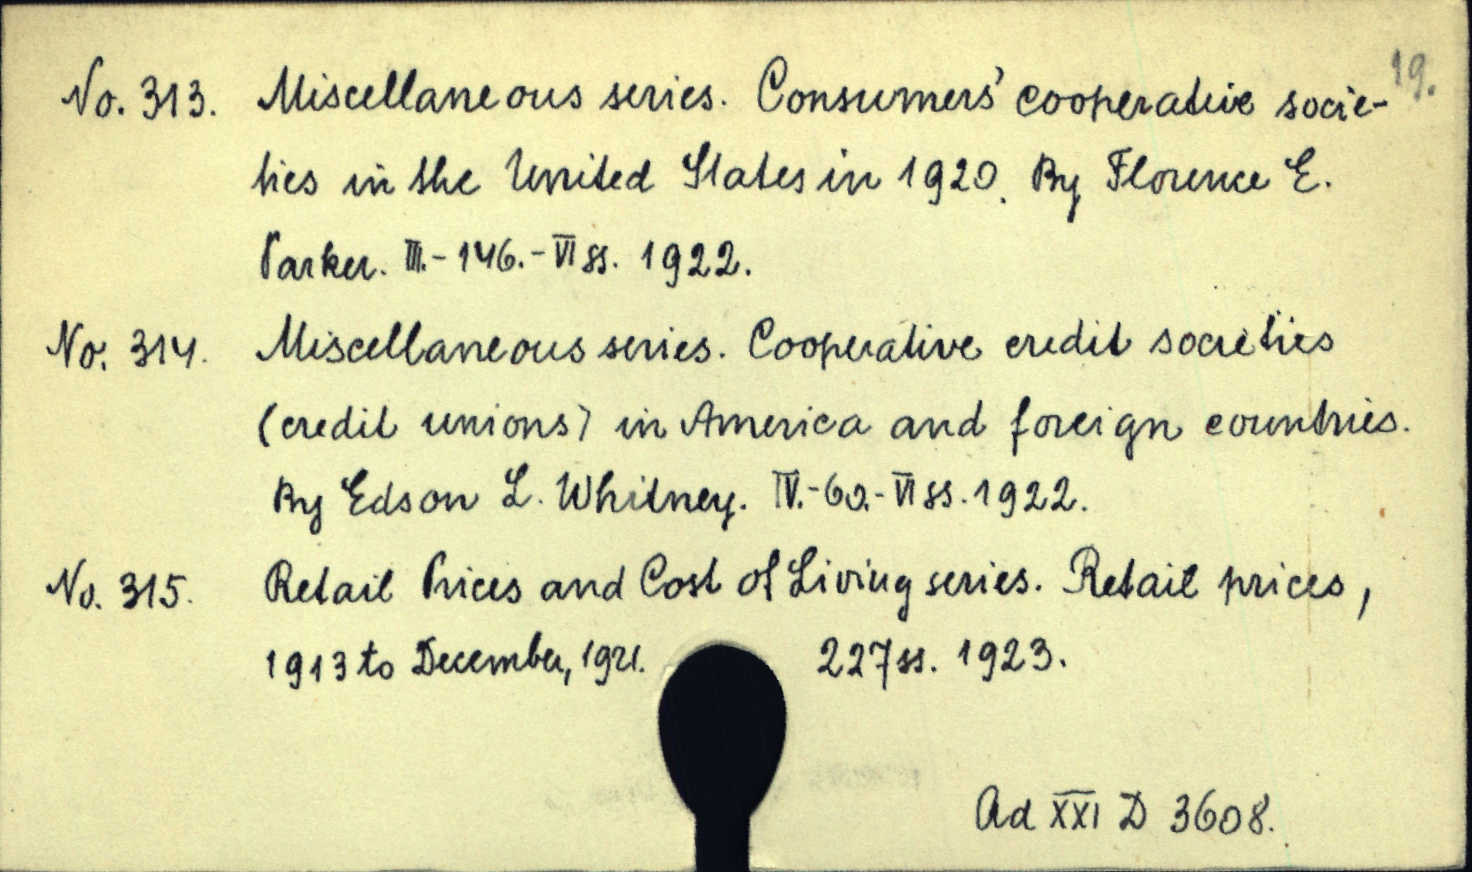 19.
No. 313. Miscellaneous series. Consumers' cooperative socie-
ties in the United States in 1920. By Florence E.
Parker. III.-146.-VI ss. 1922.
No. 314. Miscellaneous series. Cooperative credit societies
(credit unions) in America and foreign countries.
By Edson L. Whitney. IV.-60.-VI ss. 1922.
No. 315. Retail Prices and Cost of Living series. Retail prices,
1913 to December, 1921. 227 ss. 1923.
Ad XXI D 3608.